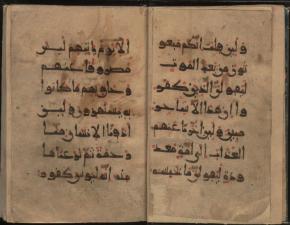 و لئن قلت انكم مبعو
ثون من بعد الموت
ليقولن الذين كفرو
ا ان هذا الا سحر
مبين ولئن اخرنا عنهم
العذاب الى امة معد
ودة ليقولن ما يحبسه
الا يوم ياتيهم ليس
مصروفا عنهم
وحاق بهم ما كانوا
به يستهزون ولئن
اذقنا الانسان منا
رحمة ثم نزعناها
منه انه ليوس كفور